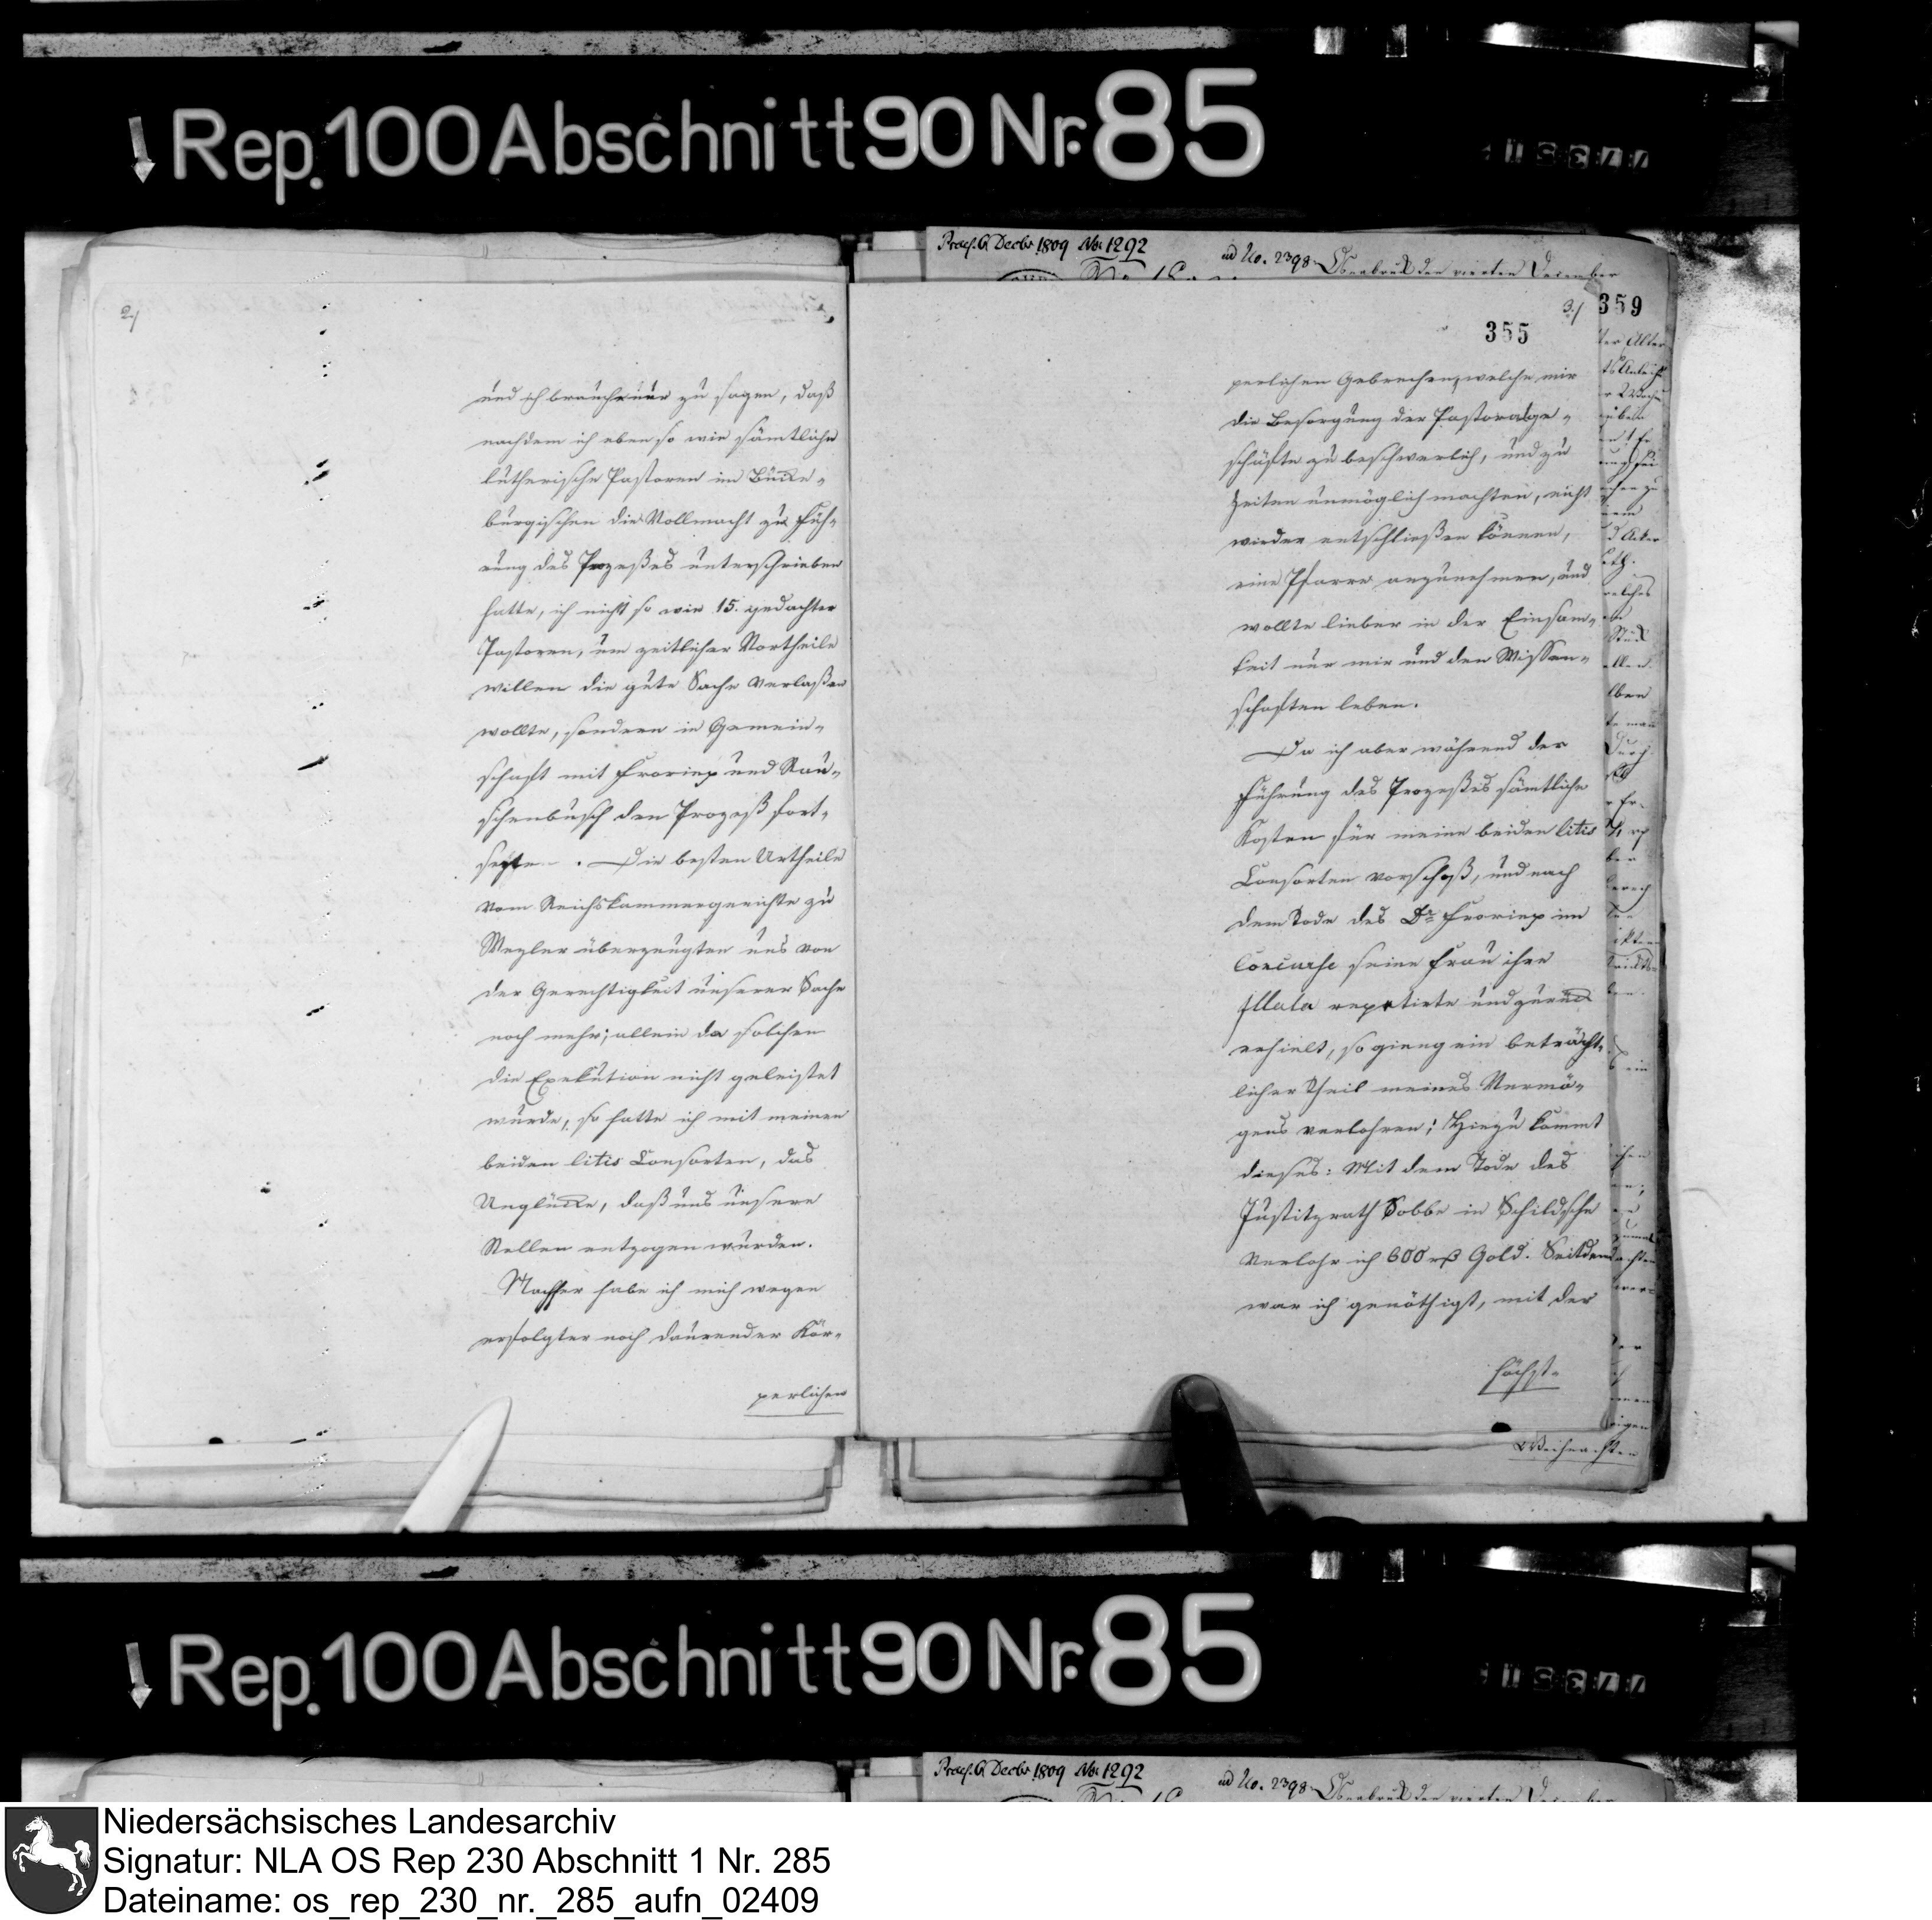 Rep. 100 Abschnitt 90 Nr. 85
Praes. 6 Decbr 1809 No 1292
ad No. 2398
Osnabrück den vierten December
2./
und ich brauche nur zu sagen, daß
nachdem ich eben so wie sämtliche
lutherische Pastoren im Bücke-
burgischen die Vollmacht zu Füh-
rung des Prozeßes unterschrieben
hatte, ich nicht so wie 15. gedachter
Pastoren, um zeitlicher Vortheile
willen die gute Sache verlaßen
wollte, sondern in Gemein-
schaft mit Froriep und Rau-
schenbusch den Prozeß fort-
sezte. Die besten Urtheile
vom Reichskammergerichte zu
Wezler überzeugten uns von
der Gerechtigkeit unserer Sache
noch mehr; allein da solchen
die Exekution nicht geleistet
wurde, so hatte ich mit meinen
beiden litis Consorten, das
Unglücke, daß uns unsere
Stellen entzogen wurden.
Nachher habe ich mich wegen
erfolgter noch daurender Kör-
perlichen
3./
359
355
perlichen Gebrechen, welche mir
die Besorgung der Pastoralge-
schäfte zu beschwerlich, und zu
Zeiten unmöglich machten, nicht
wieder entschließen können,
eine Pfarre anzunehmen, und
wollte lieber in der Einsam-
keit nur mir und den Wissen-
schaften leben.
Da ich aber während der
Führung des Prozeßes sämtliche
Kosten für meine beiden litis
Consorten vorschoß, und nach
dem Tode des Dr Froriep im
Concurse seine Frau ihre
Illata repetirte und zurück
erhielt, so gieng ein beträcht-
licher Theil meines Vermö-
gens verlohren; Hiezu kommt
dieses: Mit dem Tode des
Justitzrath Sobbe in Schildsche
verlohr ich 600 rß Gold. Seitdem
war ich genöthigt, mit der
höchst-
Weihnachten
Rep. 100 Abschnitt 90 Nr. 85
Praes. 6 Decbr 1809 No 1292
ad No. 2398
Osnabrück den vierten December
Niedersächsisches Landesarchiv
Signatur: NLA OS Rep 230 Abschnitt 1 Nr. 285
Dateiname: os_rep_230_nr._285_aufn_02409